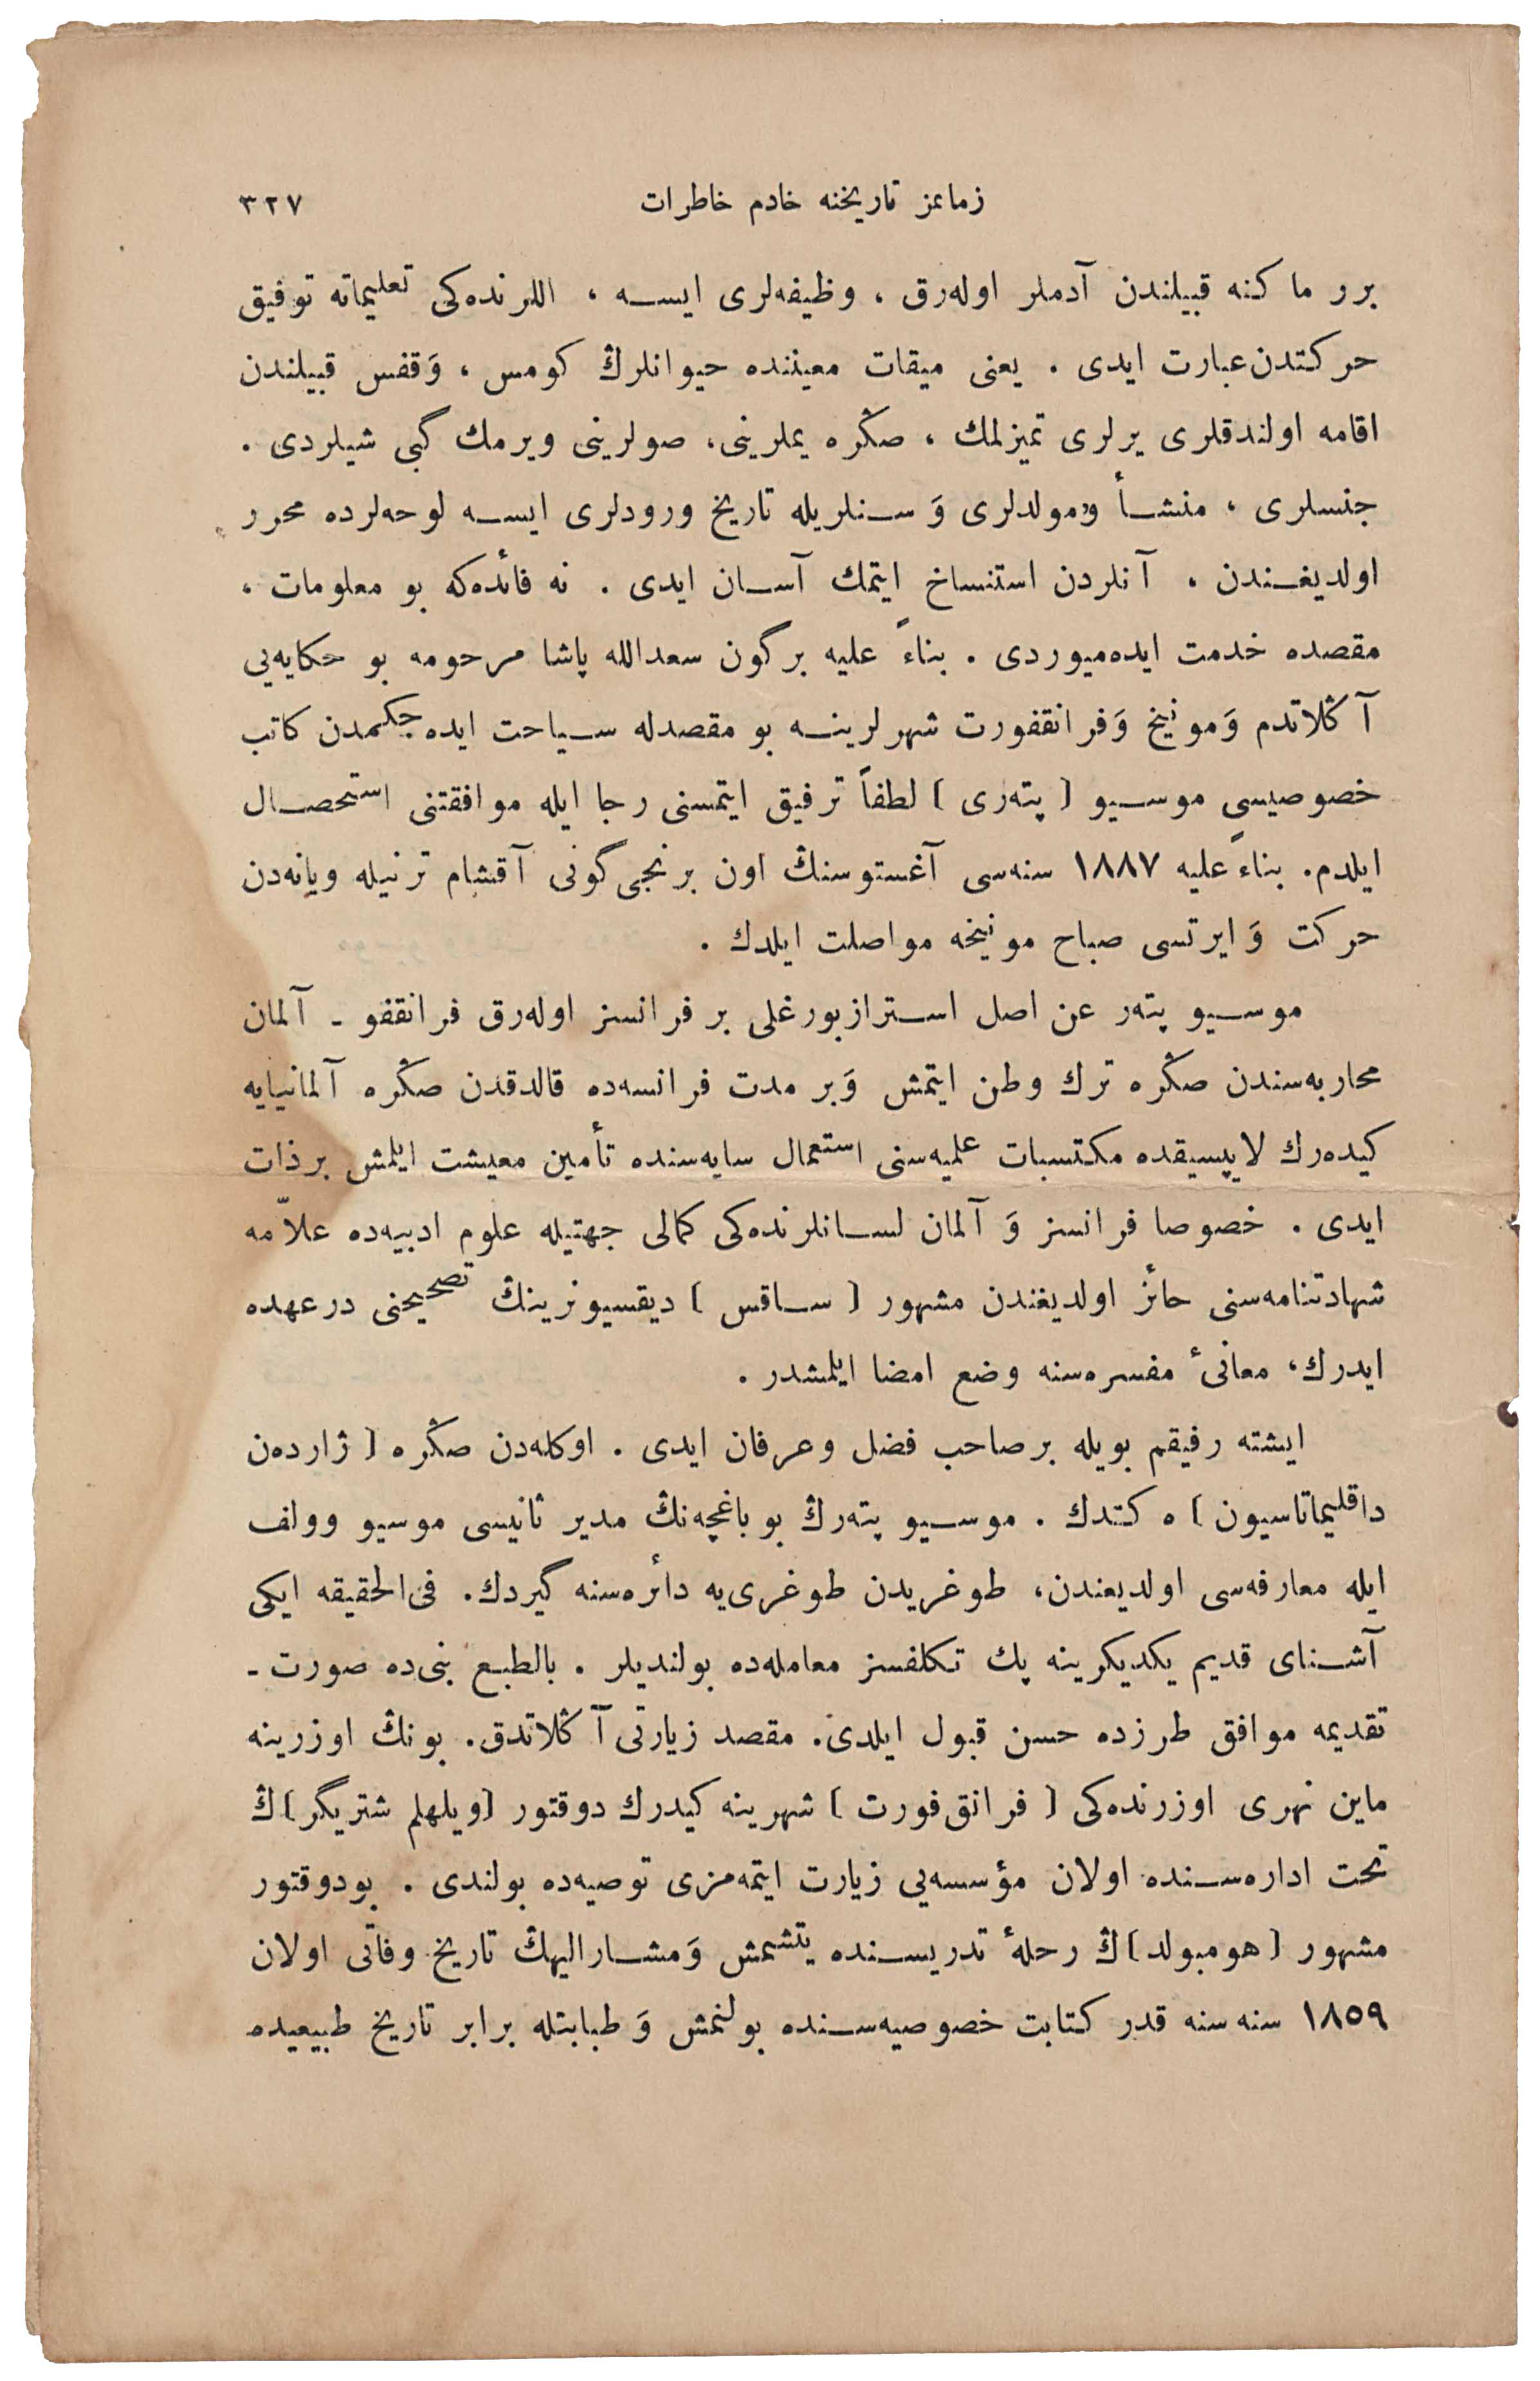 زمانمز تاریخنه خادم خاطرات ٣٢٧
برر ماكنه قبیلندن آدملر اوله‌رق ، وظیفه‌لری ایسه ، اللرنده‌كی تعلیماته توفیق
حركتدن عبارت ایدی . یعنی میقات معیننده حیوانلرڭ كومس ، وَ قفس قبیلندن
اقامه اولندقلری یرلری تمیزلمك ، صڭره یملرینی، صولرینی ویرمك گبی شیلردی .
جنسلری ، منشأ و مولدلری وَ سنلریله تاریخ ورودلری ایسه لوحه‌لرده محرر
اولدیغندن ، آنلردن استنساخ ایتمك آسان ایدی . نه فائده‌كه بو معلومات ،
مقصده خدمت ایده‌میوردی . بناءً علیه بر گون سعدالله پاشا مرحومه بو حكایه‌یی
آڭلاتدم وَ مونیخ وَ فرانقفورت شهرلرینه بو مقصدله سیاحت ایده‌جكمدن كاتب
خصوصیسی موسیو [ پته‌ری ] لطفاً ترفیق ایتمسنی رجا ایله موافقتنی استحصال
ایلدم. بناءً علیه ١٨٨٧ سنه‌سی آغستوسنڭ اون برنجی گونی آقشام ترنیله ویانه‌دن
حركت وَ ایرتسی صباح مونیخه مواصلت ایلدك .
موسیو پته‌ر عن اصل استرازبورغلی بر فرانسز اوله‌رق فرانقفو ـ آلمان
محاربه‌سندن صڭره ترك وطن ایتمش وَ بر مدت فرانسه‌ده قالدقدن صڭره آلمانیایه
كیده‌رك لایپسیقده مكتسبات علمیه‌سنی استعمال سایه‌سنده تأمین معیشت ایلمش بر ذات
ایدی . خصوصا فرانسز وَ آلمان لسانلرنده‌كی كمالی جهتیله علوم ادبیه‌ده علاّمه
شهادتنامه‌سنی حائز اولدیغندن مشهور [ ساقس ] دیقسیونرینڭ تصحیحنی درعهده
ایدرك، معانیٔ مفسره‌سنه وضع امضا ایلمشدر .
ایشته رفیقم بویله بر صاحب فضل و عرفان ایدی . اوكله‌دن صڭره [ ژارده‌ن
داقلیماتاسیون ] ه كتدك . موسیو پته‌رڭ بو باغچه‌نڭ مدیر ثانیسی موسیو وولف
ایله معارفه‌سی اولدیعندن، طوغریدن طوغری‌یه دائره‌سنه گیردك. فی‌الحقیقه ایكی
آشنای قدیم یكدیكرینه پك تكلفسز معامله‌ده بولندیلر . بالطبع بنی‌ده صورت ـ
تقدیمه موافق طرزده حسن قبول ایلدی. مقصد زیارتی آڭلاتدق. بونڭ اوزرینه
ماین نهری اوزرنده‌كی [ فرانق فورت ] شهرینه كیدرك دوقتور [ویلهلم شتریگر]ڭ
تحت اداره‌سنده اولان مؤسسه‌یی زیارت ایتمه‌مزی توصیه‌ده بولندی . بو دوقتور
مشهور [هومبولد]ڭ رحلهٔ تدریسنده یتشمش وَ مشارالیهڭ تاریخ وفاتی اولان
١٨٥٩ سنه سنه قدر كتابت خصوصیه‌سنده بولنمش وَ طبابتله برابر تاریخ طبیعیده